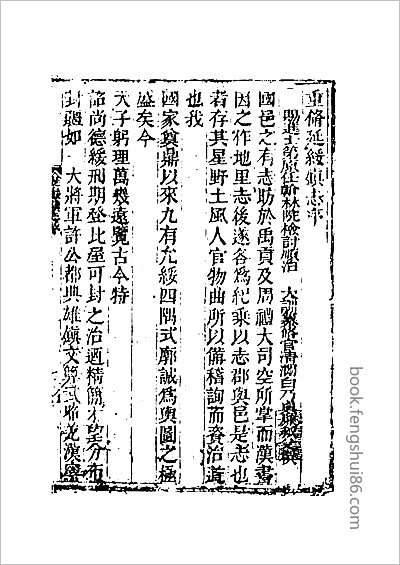 重修延綏鎮志序
賜進士第原任翰林院檢討順治
國邑之有志昉於禹貢及周禮大司空所掌而漢書
因之作地里志後遂各為紀乘以志郡與邑是志也
者存其星野土風人官物曲所以備稽詢而資治道
也我
國家奠鼎以來九有允綏四隅式廓誠為輿圖之極
盛矣今
天子躬理萬幾遠覽古今特
詔尚德綏刑期登比屋可封之治迺精簡才望分布
封疆如 大將軍許公都典雄鎮文
book.fengshui86.com